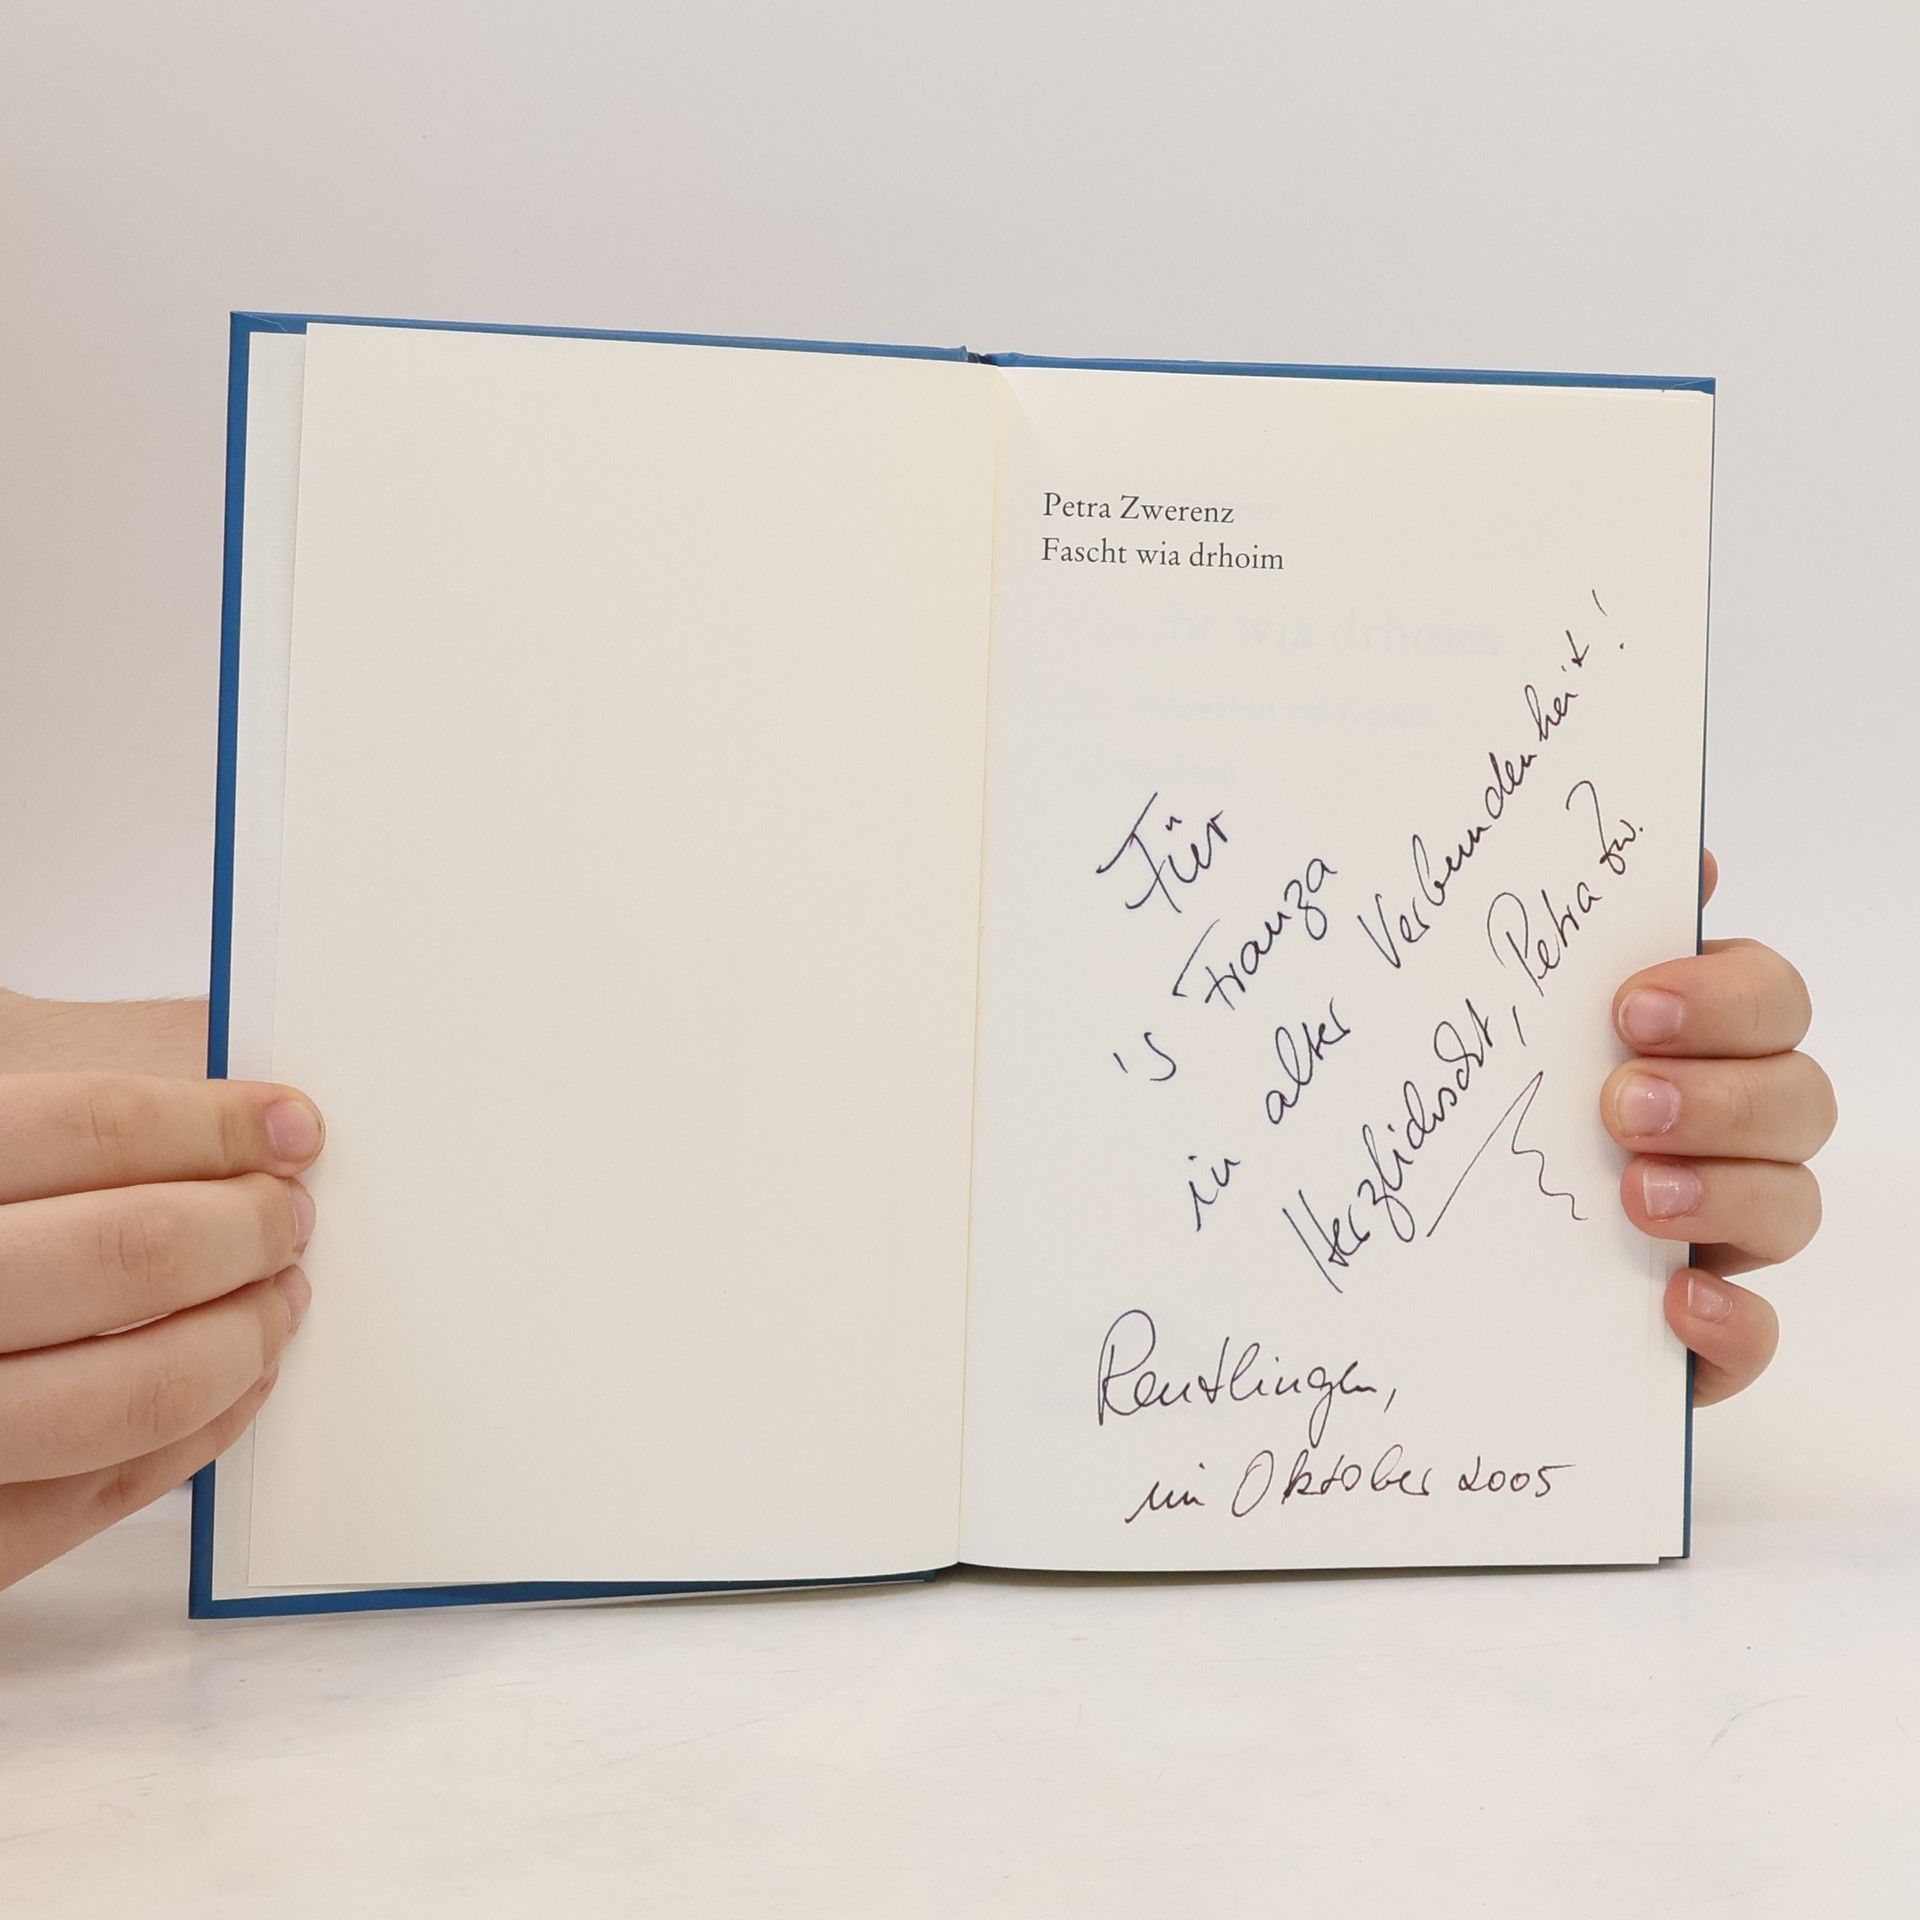 Petra Zwerenz
Fascht wia drhoim
Für
's Franza
in alter Verbundenheit!
Herzlichscht, Petra Zw.
Reutlingen,
im Oktober 2005